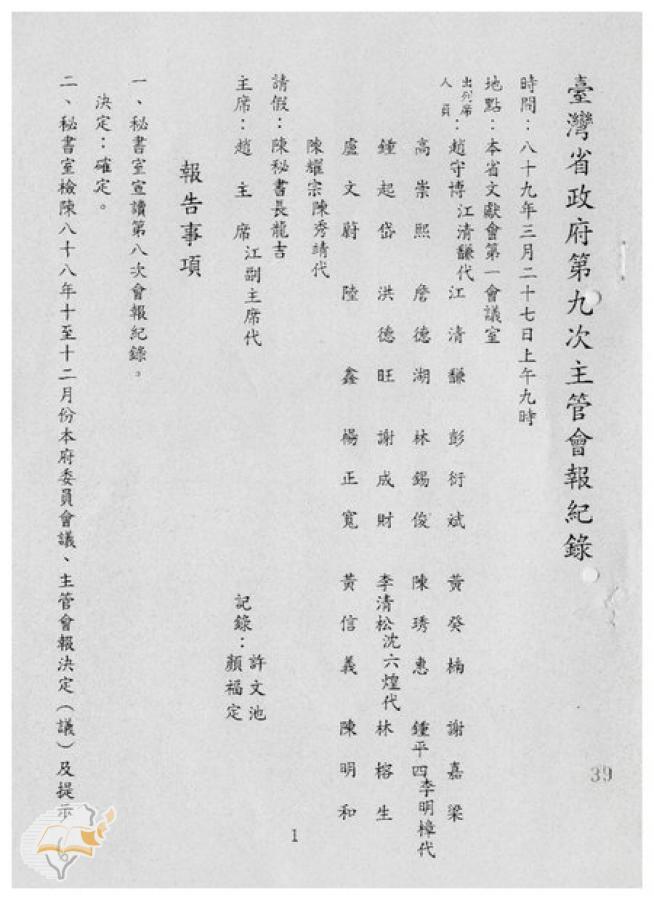 臺灣省政府第九次主管會報紀錄
時間：八十九年三月二十七日上午九時
地點：本省文獻會第一會議室
出列席人員：趙守博江清馦代　江清馦　彭衍斌　黃癸楠　謝嘉梁
高崇熙　詹德湖　林錫俊　陳琇惠　鍾平四李明樟代
鍾起岱　洪德旺　謝成財　李清松沈六煌代　林榕生
盧文蔚　陸鑫　楊正寬　黃信義　陳明和
陳耀宗陳秀靖代
請假：陳秘書長龍吉
主席：趙主席江副主席代
記錄：許文池
顏福定
報告事項
一、秘書室宣讀第八次會報紀錄。
決定：確定。
二、秘書室檢陳八十八年十至十二月份本府委員會議、主管會報決定（議）及提示
39
1